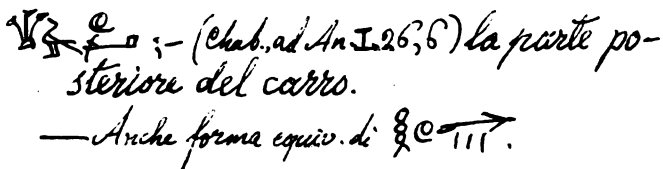 ;- (Chab., ad An. I. 26, 6) la parte po-
steriore del carro.
— Anche forma equiv. di